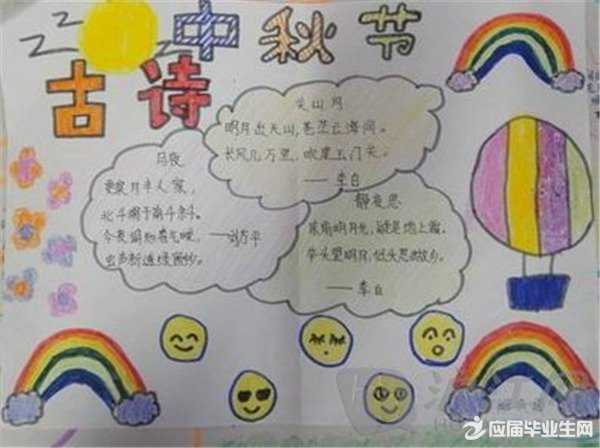 中秋节
古诗
关山月
明月出天山，苍茫云海间。
长风几万里，吹度玉门关。
——李白
月夜
更深月半人家，
北斗阑干南斗斜。
今夜偏知春气暖，
虫声新透绿窗纱。
——刘方平
静夜思
床前明月光，疑是地上霜。
举头望明月，低头思故乡。
——李白
应届毕业生网